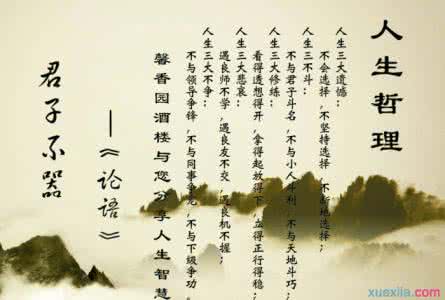 人生哲理
人生三大遗憾：
不会选择，不坚持选择，不断地选择；
人生三不斗：
不与君子斗名，不与小人斗利，不与天地斗巧；
人生三大修练：
看得透想得开，拿得起放得下，立得正行得稳；
人生三大悲哀：
遇良师不学，遇良友不交，遇良机不握；
人生三大不争：
不与领导争锋，不与同事争宠，不与下级争功。
馨香园酒楼与您分享人生智慧
—《论语》
君子不器
xuexila.com